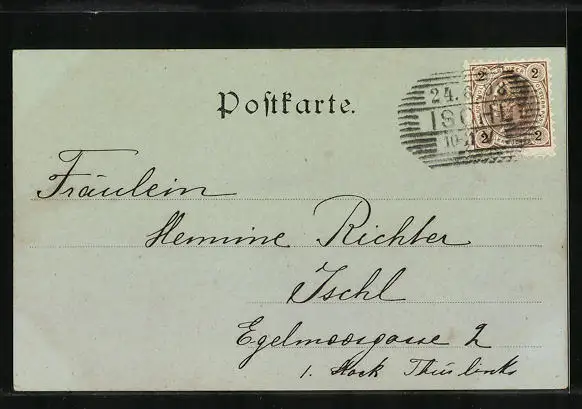 Postkarte.
2 2
24.8.98
ISCHL
2 2
Fräulein
Hermine Richter
Ischl
Egelmoosgasse 2
1. Stock Thür links